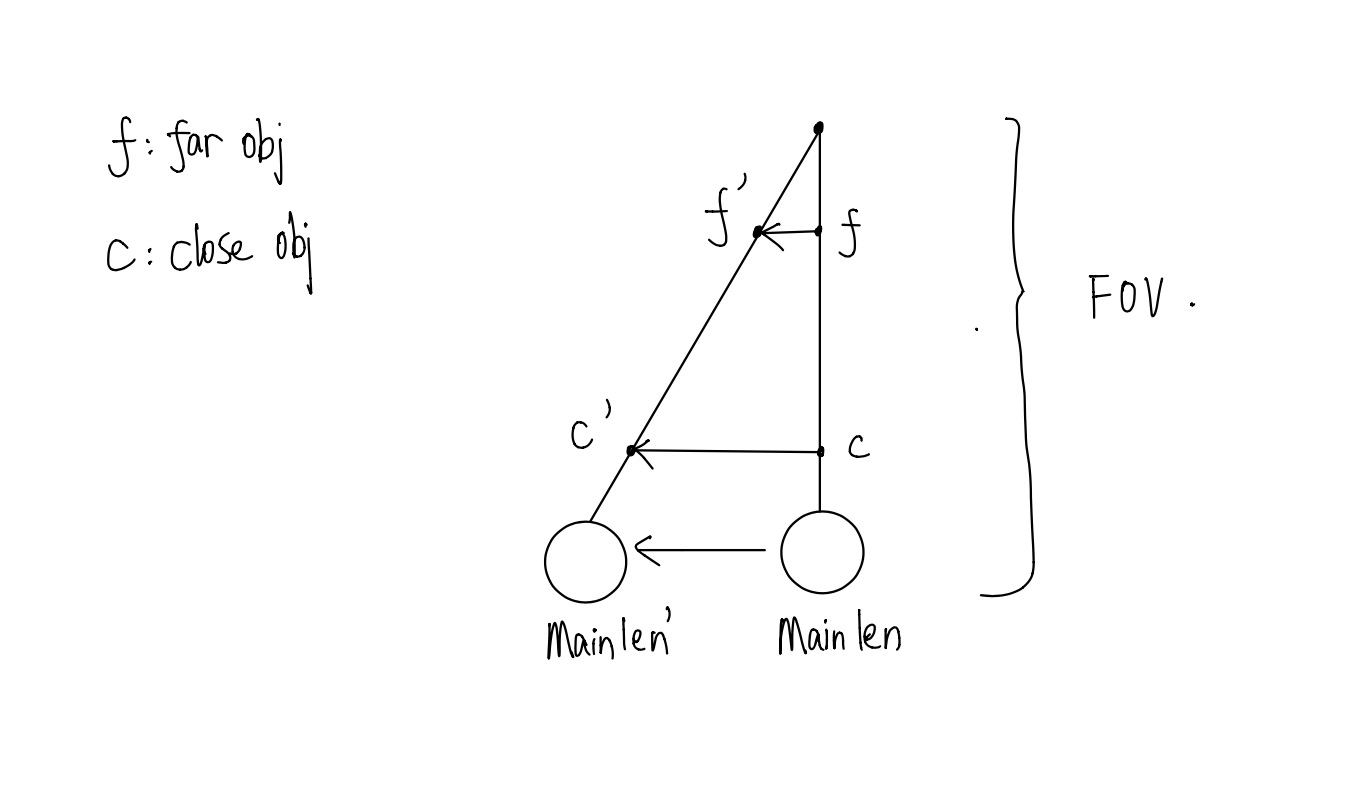 f: far obj
c: close obj
f'
f
FOV.
c'
c
Mainlen'
Mainlen